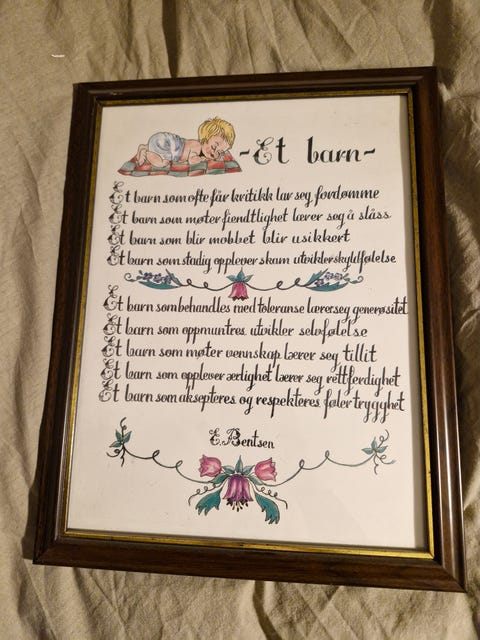 -Et barn-
Et barn som ofte får kritikk lar seg fordømme
Et barn som møter fiendtlighet lærer seg å slåss
Et barn som blir mobbet blir usikkert
Et barn som stadig opplever skam utvikler skyldfølelse
Et barn som behandles med toleranse lærer seg generøsitet
Et barn som oppmuntres utvikler selvfølelse
Et barn som møter vennskap lærer seg tillit
Et barn som opplever ærlighet lærer seg rettferdighet
Et barn som aksepteres og respekteres føler trygghet
E. Bentsen